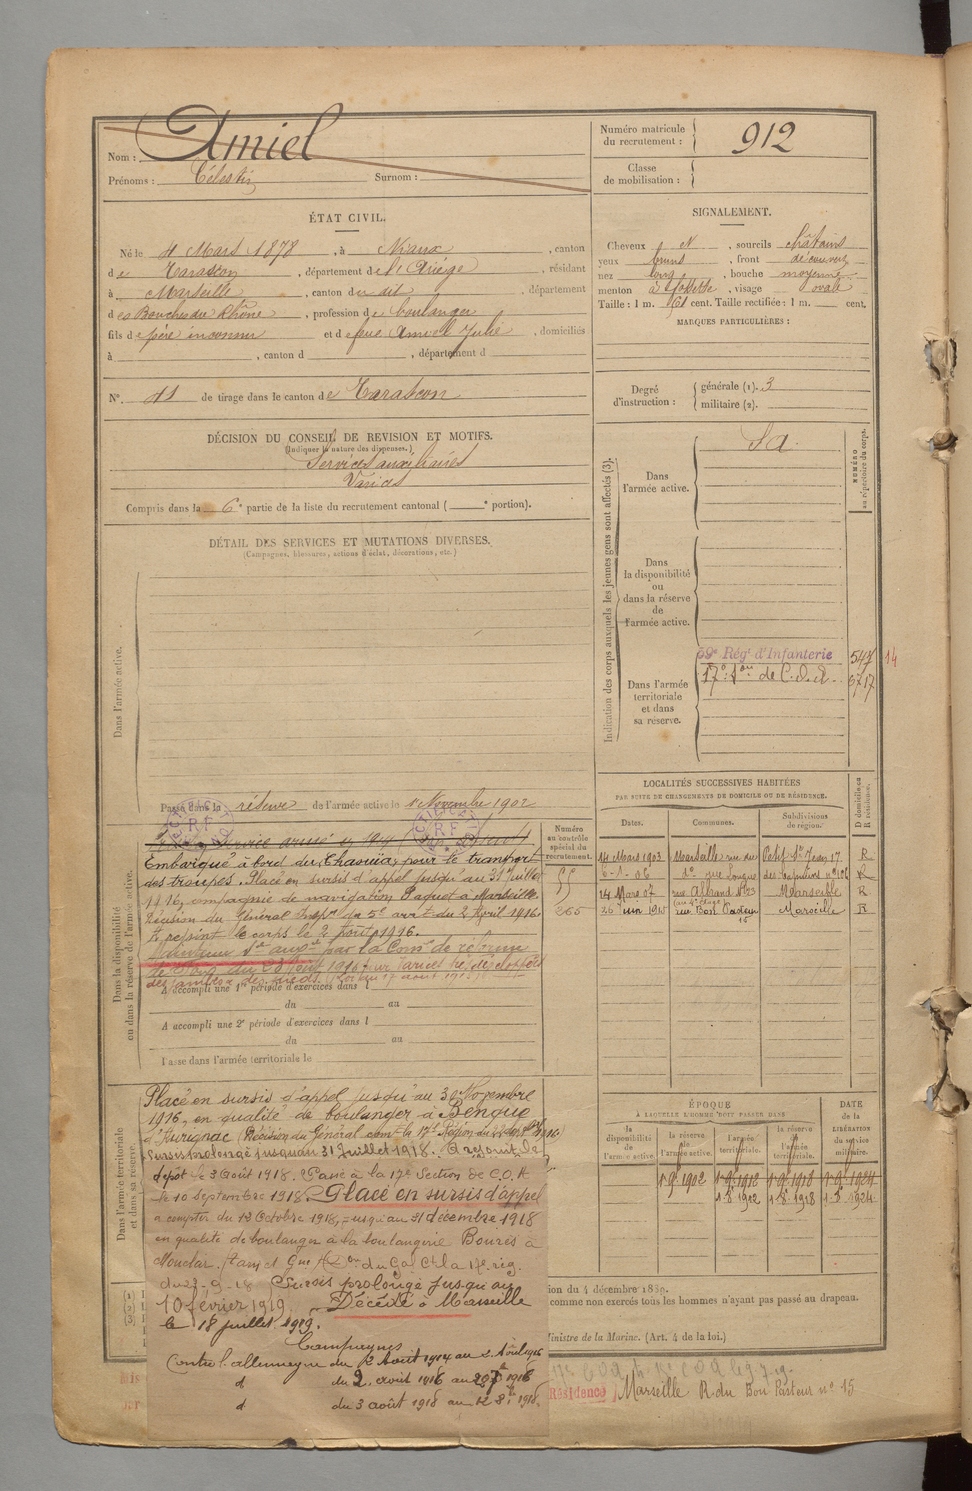 Nom : Amiel
Prénoms : Célestin Surnom :
Numéro matricule
du recrutement : 912
Classe
de mobilisation :
ÉTAT CIVIL.
Né le 4 Mars 1878, à Niaux, canton
de Tarascon, département de l'Ariège, résidant
à Marseille, canton du dit, département
des Bouches du Rhône, profession de boulanger
fils de père inconnu et de feue Amiel Julie, domiciliés
à , canton d , département d
N° 41 de tirage dans le canton de Tarascon
DÉCISION DU CONSEIL DE REVISION ET MOTIFS.
(Indiquer la nature des dispenses.)
Services auxiliaires
Varices
Compris dans la 6e partie de la liste du recrutement cantonal ( e portion).
DÉTAIL DES SERVICES ET MUTATIONS DIVERSES.
(Campagnes, blessures, actions d'éclat, décorations, etc.)
Dans l'armée active.
Passé dans la réserve de l'armée active le 1er Novembre 1902
SIGNALEMENT.
Cheveux N, sourcils châtains
yeux bruns, front découvert
nez long, bouche moyenne
menton à fossette, visage ovale
Taille : 1 m. 61 cent. Taille rectifiée : 1 m. cent.
MARQUES PARTICULIÈRES :
Degré
d'instruction :
générale (1). 3
militaire (2).
Indication des corps auxquels les jeunes gens sont affectés (3).
NUMÉRO
au répertoire du corps.
Dans
l'armée active.
S a
Dans
la disponibilité
ou
dans la réserve
de
l'armée active.
Dans l'armée
territoriale
et dans
sa réserve.
59e Régt d'Infanterie 547 14
17e son de C.O.A. 3717
LOCALITÉS SUCCESSIVES HABITÉES
PAR SUITE DE CHANGEMENTS DE DOMICILE OU DE RÉSIDENCE.
D domicile ou R résidence.
Dates. Communes. Subdivisions
de région.
14 Mars 1903 Marseille rue du Petit St Jean 17 R
6-1-06 do rue Longue des Capucins no 106 R
24 Mars 07 rue Marseille R
26 Juin 1915 rue Bon Pasteur 15 Marseille R
Numéro
au contrôle
spécial du
recrutement.
Dans la disponibilité
ou dans la réserve de l'armée active.
service armé
Embarqué à bord du Chaouïa, pour le transport
des troupes. Placé en sursis d'appel jusqu'au 31 Juillet
1916, compagnie de navigation Paquet à Marseille.
Décision du Général Inspr du 5e arrt du 2 Avril 1916.
A rejoint le corps le 2 Août 1916.
par la Comon de réforme
A accompli une 1re période d'exercices dans l
du au
A accompli une 2e période d'exercices dans l
du au
Passé dans l'armée territoriale le
Dans l'armée territoriale
et dans sa réserve.
Placé en sursis d'appel jusqu'au 30 Novembre
1916, en qualité de boulanger à Benque
d'Aurignac (Décision du Général comt la 17e Région du
Sursis prolongé jusqu'au 31 Juillet 1918. A rejoint le
dépôt le 3 Août 1918. Passé à la 17e Section de C.O.A
le 10 Septembre 1918. Placé en sursis d'appel
à compter du 12 Octobre 1918, jusqu'au 31 décembre 1918
en qualité de boulanger à la boulangerie Bourès à
Monclar. Tarn et Gne du Gal Ct la 17e rég.
du 23-9-18 Sursis prolongé jusqu'au
10 février 1919. Décédé à Marseille
le 18 juillet 1919.
Campagnes
Contre l'allemagne du 2 Août 1914 au 2 Avril 1916
d du 2 août 1916 au 1916
d du 3 août 1918 au 1918
ÉPOQUE
À LAQUELLE L'HOMME DOIT PASSER DANS
DATE
de la
LIBÉRATION
du service
militaire.
la
disponibilité
de
l'armée active.
la réserve
de
l'armée active.
l'armée
territoriale.
la réserve
de l'armée
territoriale.
1-9-1902 1-9-1912 1-9-1918 1-9-1924
ion du 4 décembre 1889.
comme non exercés tous les hommes n'ayant pas passé au drapeau.
Ministre de la Marine. (Art. 4 de la loi.)
Résidence Marseille R. du Bon Pasteur no 15